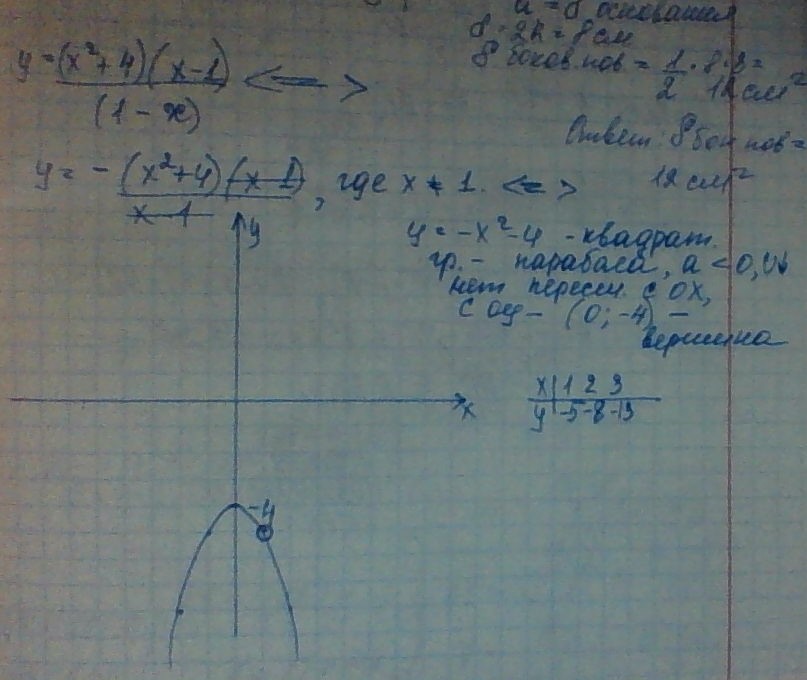 a = 8 основания
P = 2h = 8 см
y = (x²+4)(x-1) <=>
(1-x)
P боков. пов = 1/2 · 8 · 3 =
12 см²
Ответ: Sбок пов =
12 см²
y = - (x²+4)(x-1) , где x ≠ 1. <=>
x-1
y = -x²-4 - квадрат.
гр. - парабола, a < 0, ↓
нет пересеч. с OX,
с oy - (0; -4) -
вершина
y
x
x | 1 2 3
y | -5 -8 -13
-4